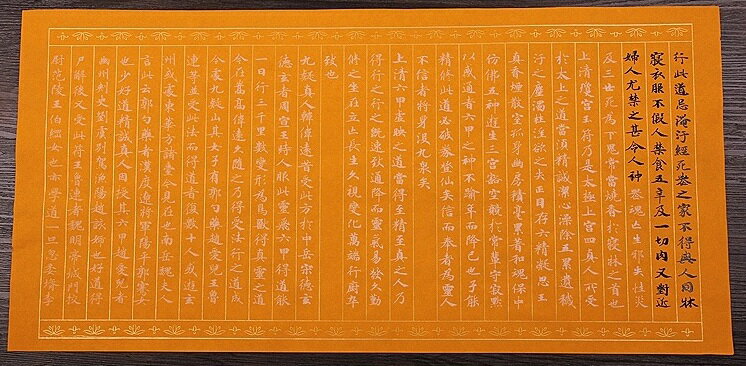 行此道忌淹汙經死喪之家不得與人同牀
寢衣服不假人禁食五辛及一切肉又對近
婦人尤禁之甚令人神喪魂亡生邪失性災
及三世死為下鬼常當燒香於寢牀之首也
上清瓊宮玉符乃是太極上宮四真人所受
於太上之道當須精誠潔心澡除五累遺穢
汙之塵濁杜淫欲之失正目存六精凝思玉
真香煙散室孤身幽房積毫累著和魂保中
仿佛五神遊生三宮豁空競於常輩守寂默
以感通者六甲之神不踰年而降已也子能
精修此道必破券登仙矣信而奉者為靈人
不信者將身沒九泉矣
上清六甲虛映之道當得至精至真之人乃
得行之行之既速致通降而靈氣易發久勤
修之坐在立亡長生久視變化萬端行廚卒
致也
九疑真人韓偉遠昔受此方於中岳宋德玄
德玄者周宣王時人服此靈飛六甲得道能
一日行三千里數變形為鳥獸得真靈之道
今在嵩高偉遠久隨之乃得受法行之道成
今處九疑山其女子有郭勺藥趙愛兒王魯
連等並受此法而得道者復數十人或遊玄
州或處東華方諸臺今見在也南岳魏夫人
言此云郭勺藥者漢度遼將軍陽平郭騫女
也少好道精誠真人因授其六甲趙愛兒者
幽州刺史劉虞別駕漁陽趙該姊也好道得
尸解後又受此符王魯連者魏明帝城門校
尉范陵王伯綱女也亦學道一旦忽委婿李